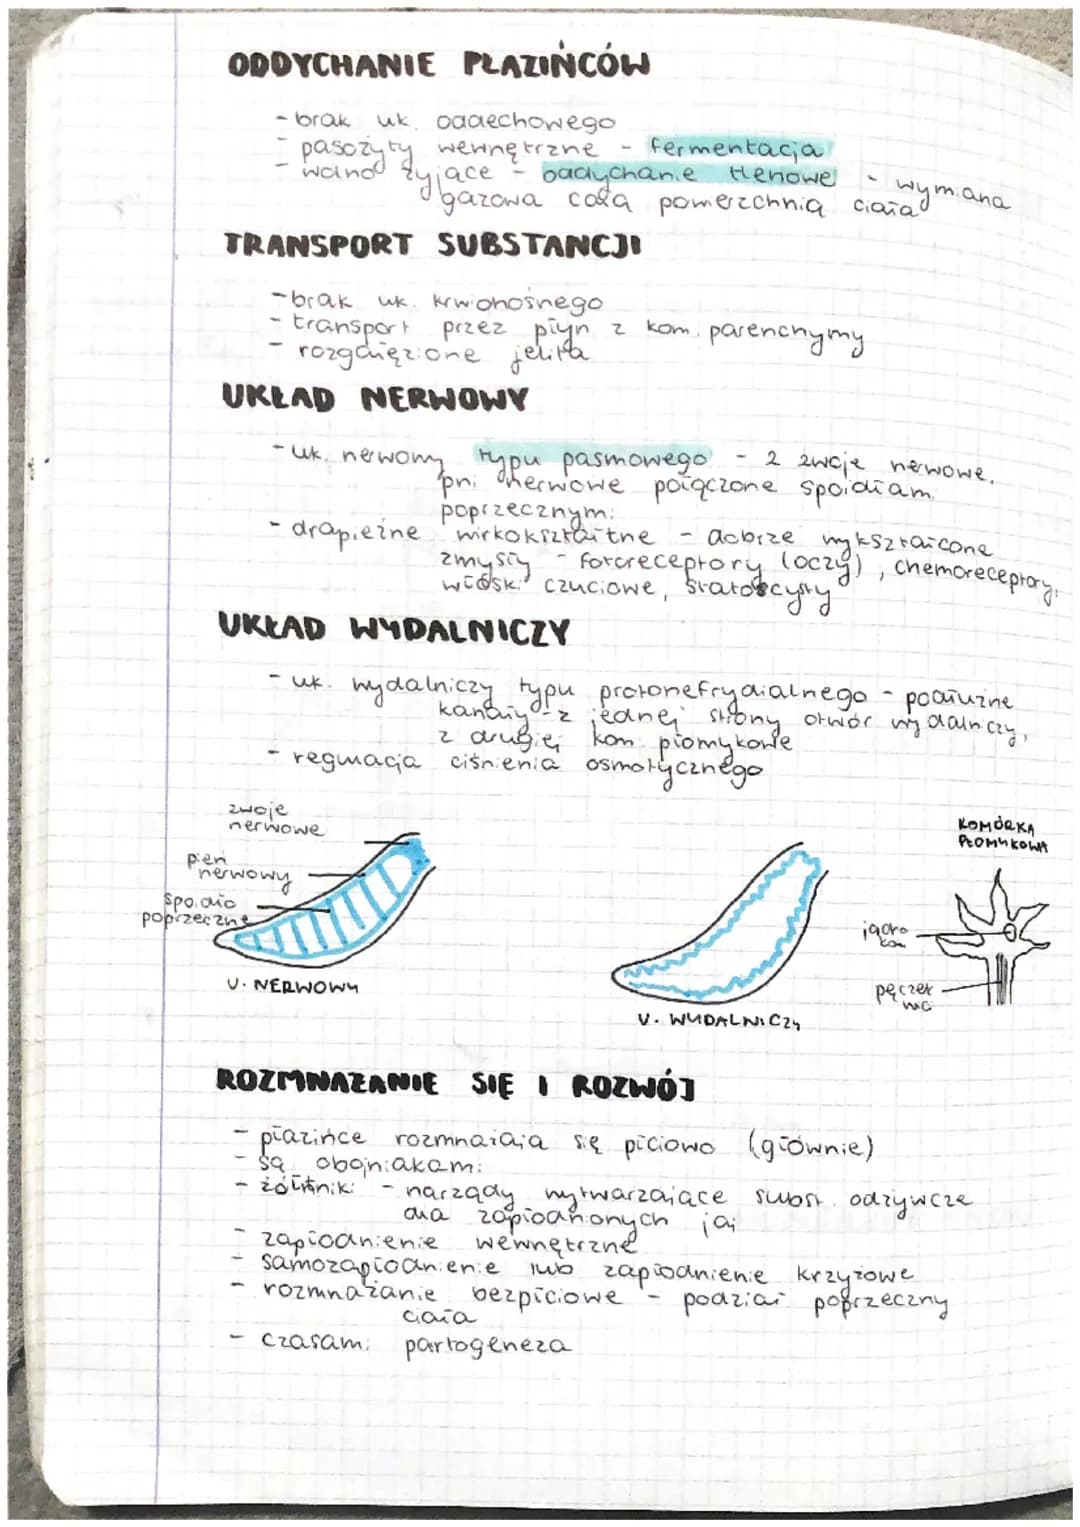 ODDYCHANIE PŁAZIŃCÓW
- brak uk. oddechowego
- pasożyty wewnętrzne - fermentacja
- wolno żyjące - oddychanie tlenowe - wymiana
gazowa całą powierzchnią ciała
TRANSPORT SUBSTANCJI
- brak uk. krwionośnego
- transport przez płyn z kom. parenchymy
- rozgałęzione jelita
UKŁAD NERWOWY
- uk. nerwowy typu pasmowego - 2 zwoje nerwowe,
pni nerwowe połączone spoidłami
poprzecznymi
- drapieżne wirkokształtne - dobrze wykształcone
zmysły - fotoreceptory (oczy), chemoreceptory,
włoski czuciowe, statocysty
UKŁAD WYDALNICZY
- uk. wydalniczy typu protonefrydialnego - podłużne
kanały - z jednej strony otwór wydalniczy,
z drugiej kom. płomykowe
- regulacja ciśnienia osmotycznego
zwoje
nerwowe
pień
nerwowy
spoidło
poprzeczne
U. NERWOWY
U. WYDALNICZY
KOMÓRKA
PŁOMYKOWA
jądro
kom
pęczek
wici
ROZMNAŻANIE SIĘ I ROZWÓJ
- płazińce rozmnażają się płciowo (głównie)
- są obojniakami
- żółtniki - narządy wytwarzające subst. odżywcze
dla zapłodnionych jaj
- zapłodnienie wewnętrzne
- samozapłodnienie lub zapłodnienie krzyżowe
- rozmnażanie bezpłciowe - podział poprzeczny
ciała
- czasami partogeneza